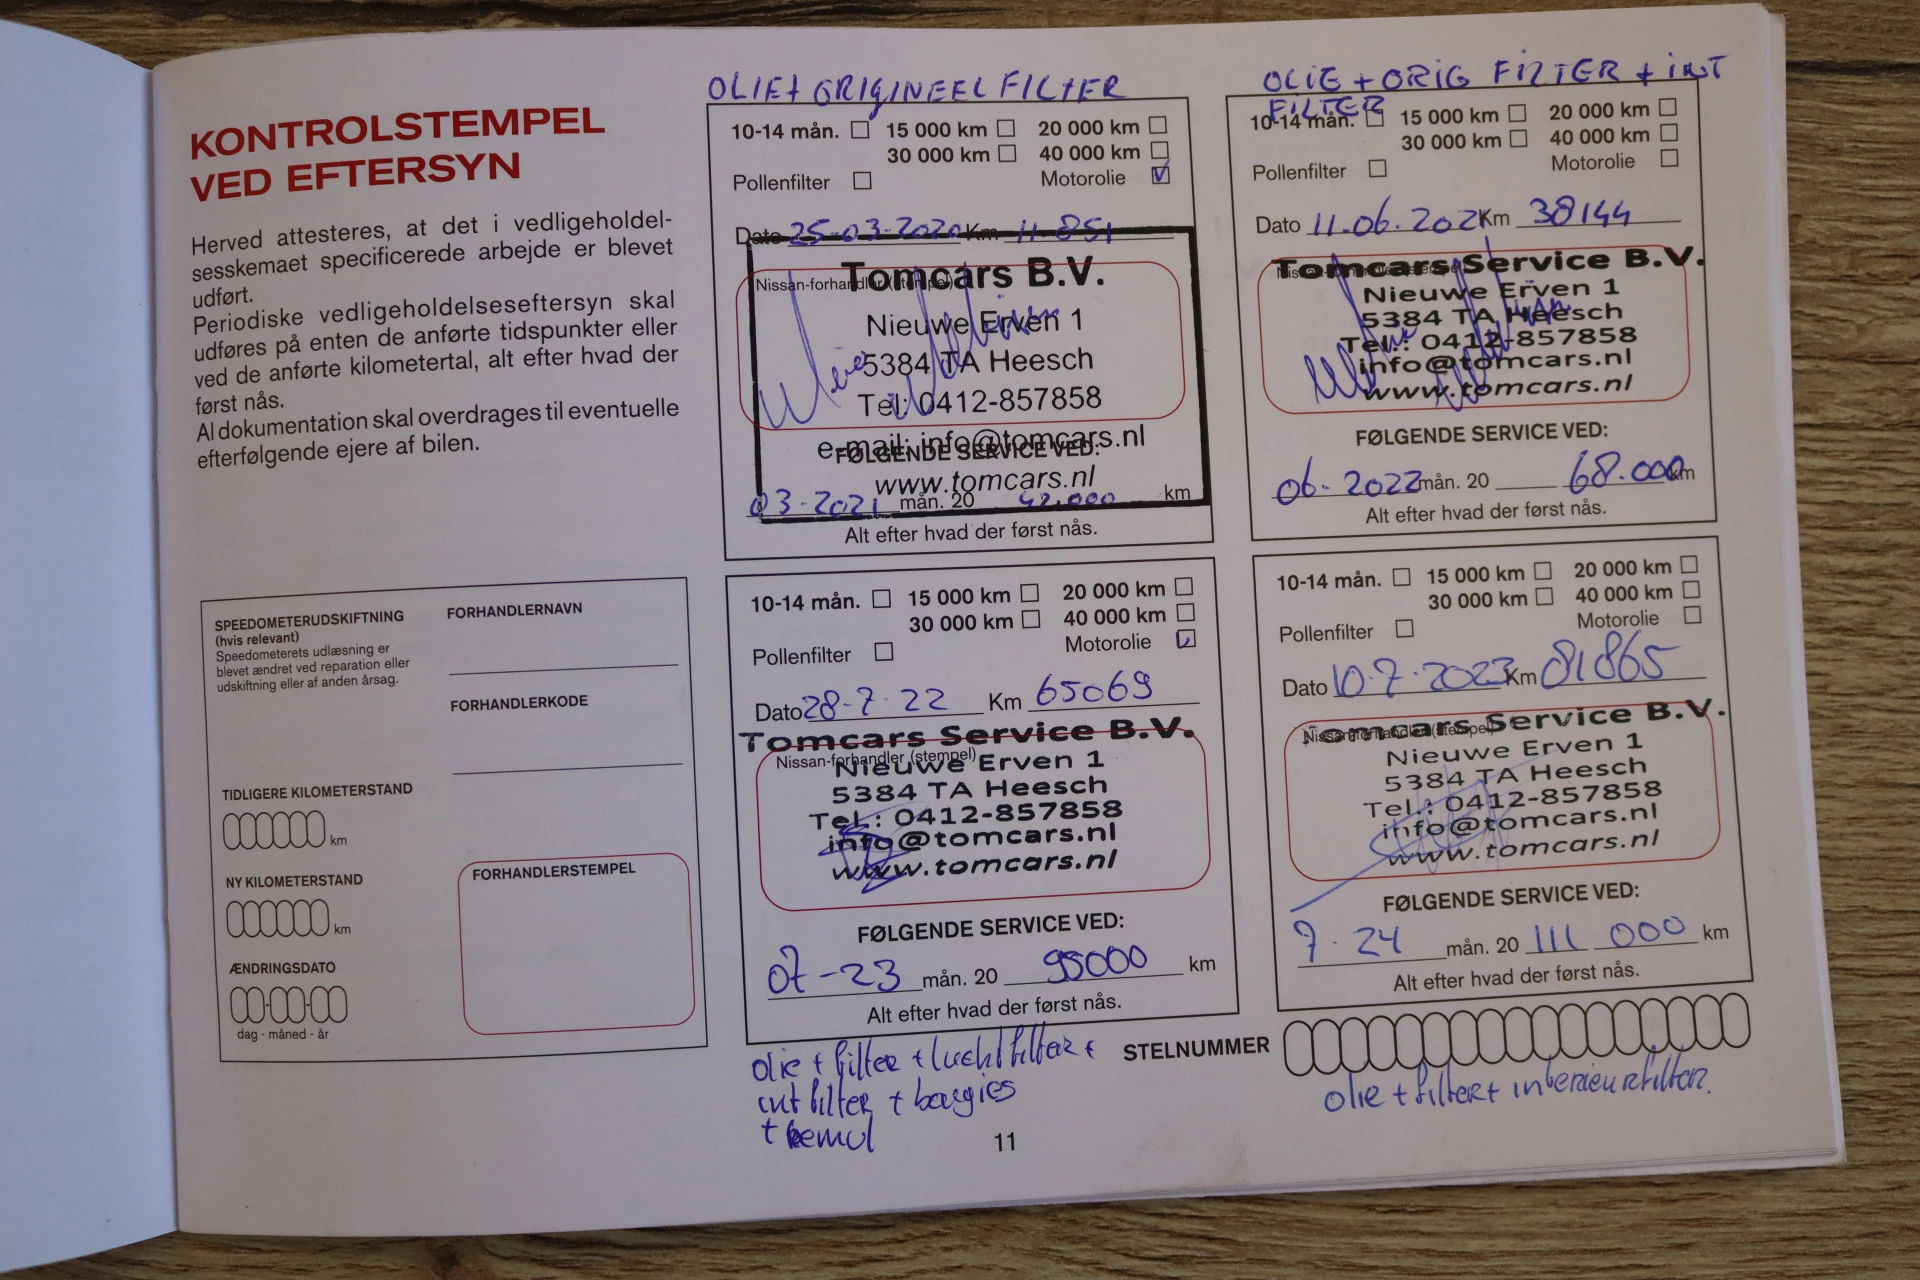 KONTROLSTEMPEL
VED EFTERSYN
Herved attesteres, at det i vedligeholdel-
sesskemaet specificerede arbejde er blevet
udført.
Periodiske vedligeholdelseseftersyn skal
udføres på enten de anførte tidspunkter eller
ved de anførte kilometertal, alt efter hvad der
først nås.
Al dokumentation skal overdrages til eventuelle
efterfølgende ejere af bilen.
SPEEDOMETERUDSKIFTNING
(hvis relevant)
Speedometerets udlæsning er
blevet ændret ved reparation eller
udskiftning eller af anden årsag.
FORHANDLERNAVN
FORHANDLERKODE
TIDLIGERE KILOMETERSTAND
km
NY KILOMETERSTAND
km
ÆNDRINGSDATO
dag - måned - år
FORHANDLERSTEMPEL
OLIE + ORIGINEEL FILTER
10-14 mån. 15 000 km 20 000 km
30 000 km 40 000 km
Pollenfilter Motorolie
Dato 25-03-2020 Km 11.851
Tomcars B.V.
Nissan-forhandler (stempel)
Nieuwe Erven 1
5384 TA Heesch
Tel: 0412-857858
e-mail: info@tomcars.nl
FØLGENDE SERVICE VED:
www.tomcars.nl
03-2021 mån. 20 42.000 km
Alt efter hvad der først nås.
OLIE + ORIG FILTER + INT
FILTER
10-14 mån. 15 000 km 20 000 km
30 000 km 40 000 km
Pollenfilter Motorolie
Dato 11.06.2021 Km 38144
Tomcars Service B.V.
Nissan-forhandler (stempel)
Nieuwe Erven 1
5384 TA Heesch
Tel.: 0412-857858
info@tomcars.nl
www.tomcars.nl
FØLGENDE SERVICE VED:
06-2022 mån. 20 68.000 km
Alt efter hvad der først nås.
10-14 mån. 15 000 km 20 000 km
30 000 km 40 000 km
Pollenfilter Motorolie
Dato 28-7-22 Km 65069
Tomcars Service B.V.
Nissan-forhandler (stempel)
Nieuwe Erven 1
5384 TA Heesch
Tel.: 0412-857858
info@tomcars.nl
www.tomcars.nl
FØLGENDE SERVICE VED:
07-23 mån. 20 95000 km
Alt efter hvad der først nås.
olie + filter + luchtfilter +
int filter + bougies
+ remvl
10-14 mån. 15 000 km 20 000 km
30 000 km 40 000 km
Pollenfilter Motorolie
Dato 10-7-2023 Km 81865
Tomcars Service B.V.
Nissan-forhandler (stempel)
Nieuwe Erven 1
5384 TA Heesch
Tel.: 0412-857858
info@tomcars.nl
www.tomcars.nl
FØLGENDE SERVICE VED:
7-24 mån. 20 111 000 km
Alt efter hvad der først nås.
STELNUMMER
olie + filter + interieurfilter.
11